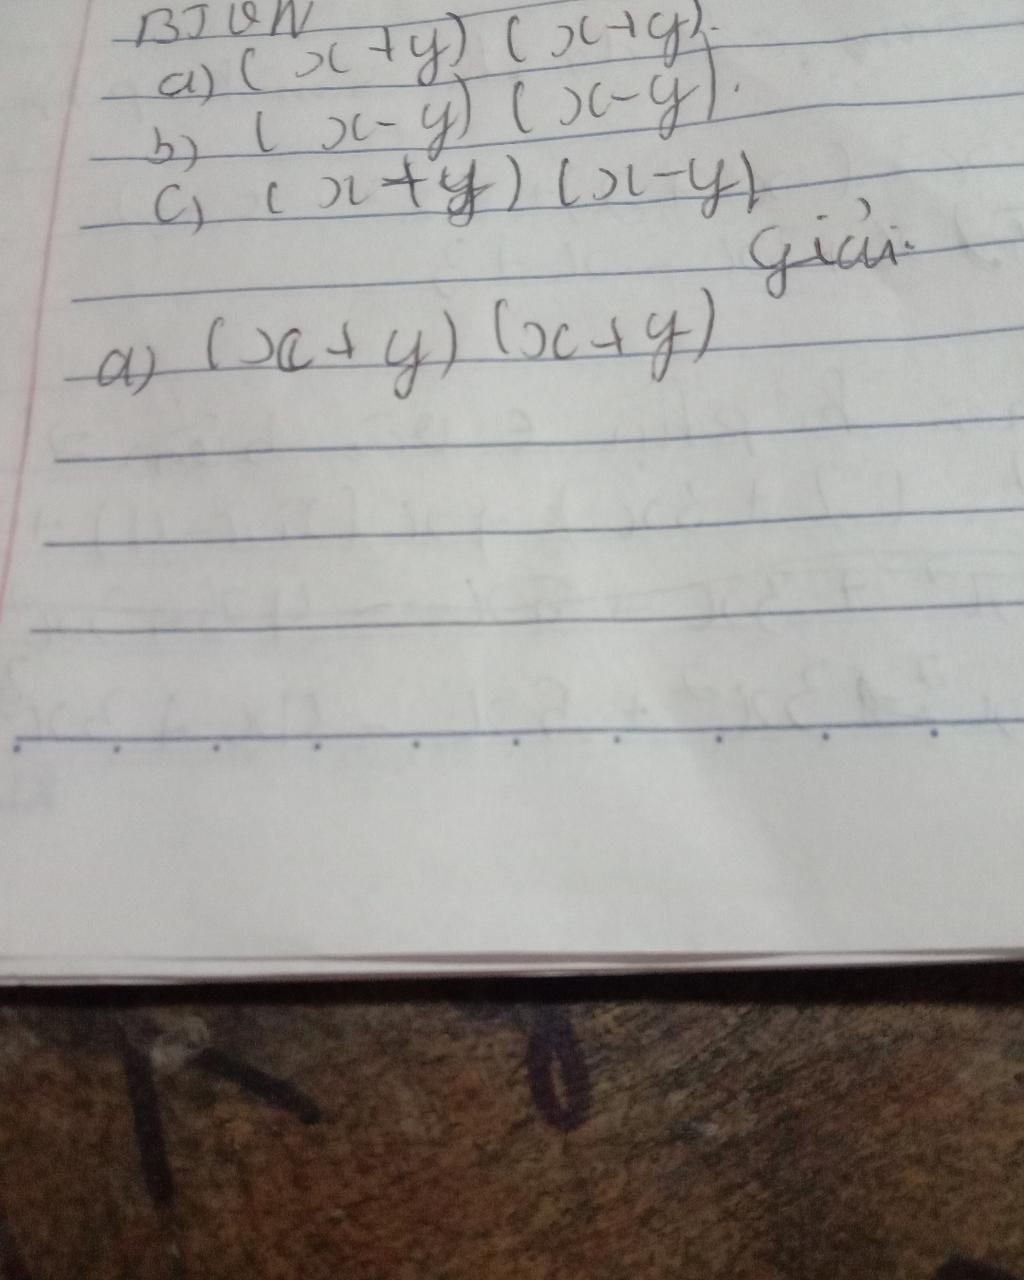 BTVN
a) (x+y) (x+y).
b) (x-y) (x-y).
c) (x+y) (x-y)
Giải.
a) (x+y) (x+y)